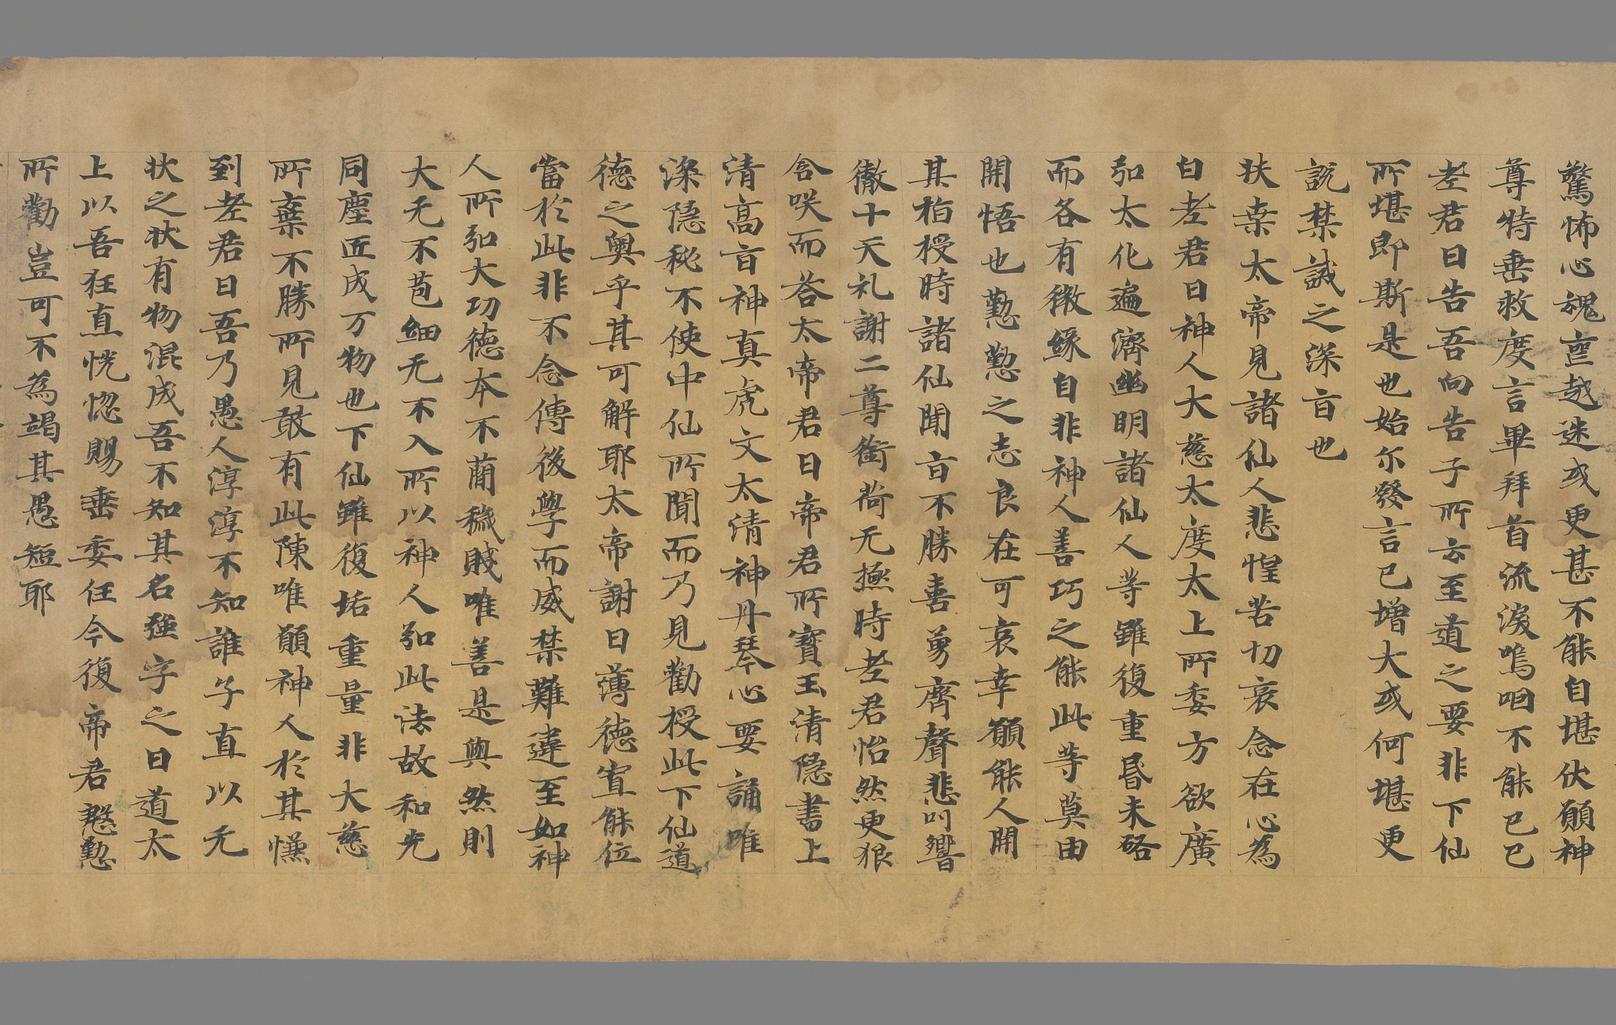 驚怖心魂崩越迷或更甚不能自堪伏願神
尊特垂救度言畢拜首流淚嗚咽不能已已
老君曰告吾向告子所云至道之要非下仙
所堪即斯是也始尔發言已增大或何堪更
說禁誡之深旨也
扶桒太帝見諸仙人悲惶苦切哀念在心為
白老君曰神人大慈太度太上所委方欲廣
弘太化遍濟幽明諸仙人等雖復重昏未啓
而各有徵緣自非神人善巧之能此等莫由
開悟也懃懃之志良在可哀幸願能人開
其指授時諸仙聞旨不勝喜勇齊聲悲叫響
徹十天礼謝二尊銜荷无極時老君怡然更狼
含咲而荅太帝君曰帝君所寶玉清隱書上
清高旨神真虎文太清神丹琴心要誦唯
深隱秘不使中仙所聞而乃見勸授此下仙道
德之輿乎其可解耶太帝謝曰薄德宣能位
當於此非不念傳後學而威禁難違至如神
人所弘大功德本不蕳穢賤唯善是與然則
大无不苞細无不入所以神人弘此法故和光
同塵匠成万物也下仙雖復垢重量非大慈
所棄不勝所見敢有此陳唯願神人於其懽
到老君曰吾乃愚人淳淳不知誰子直以无
狀之狀有物混成吾不知其名強字之曰道太
上以吾狂直恍惚賜垂委任今復帝君慇懃
所勸豈可不為竭其愚短耶